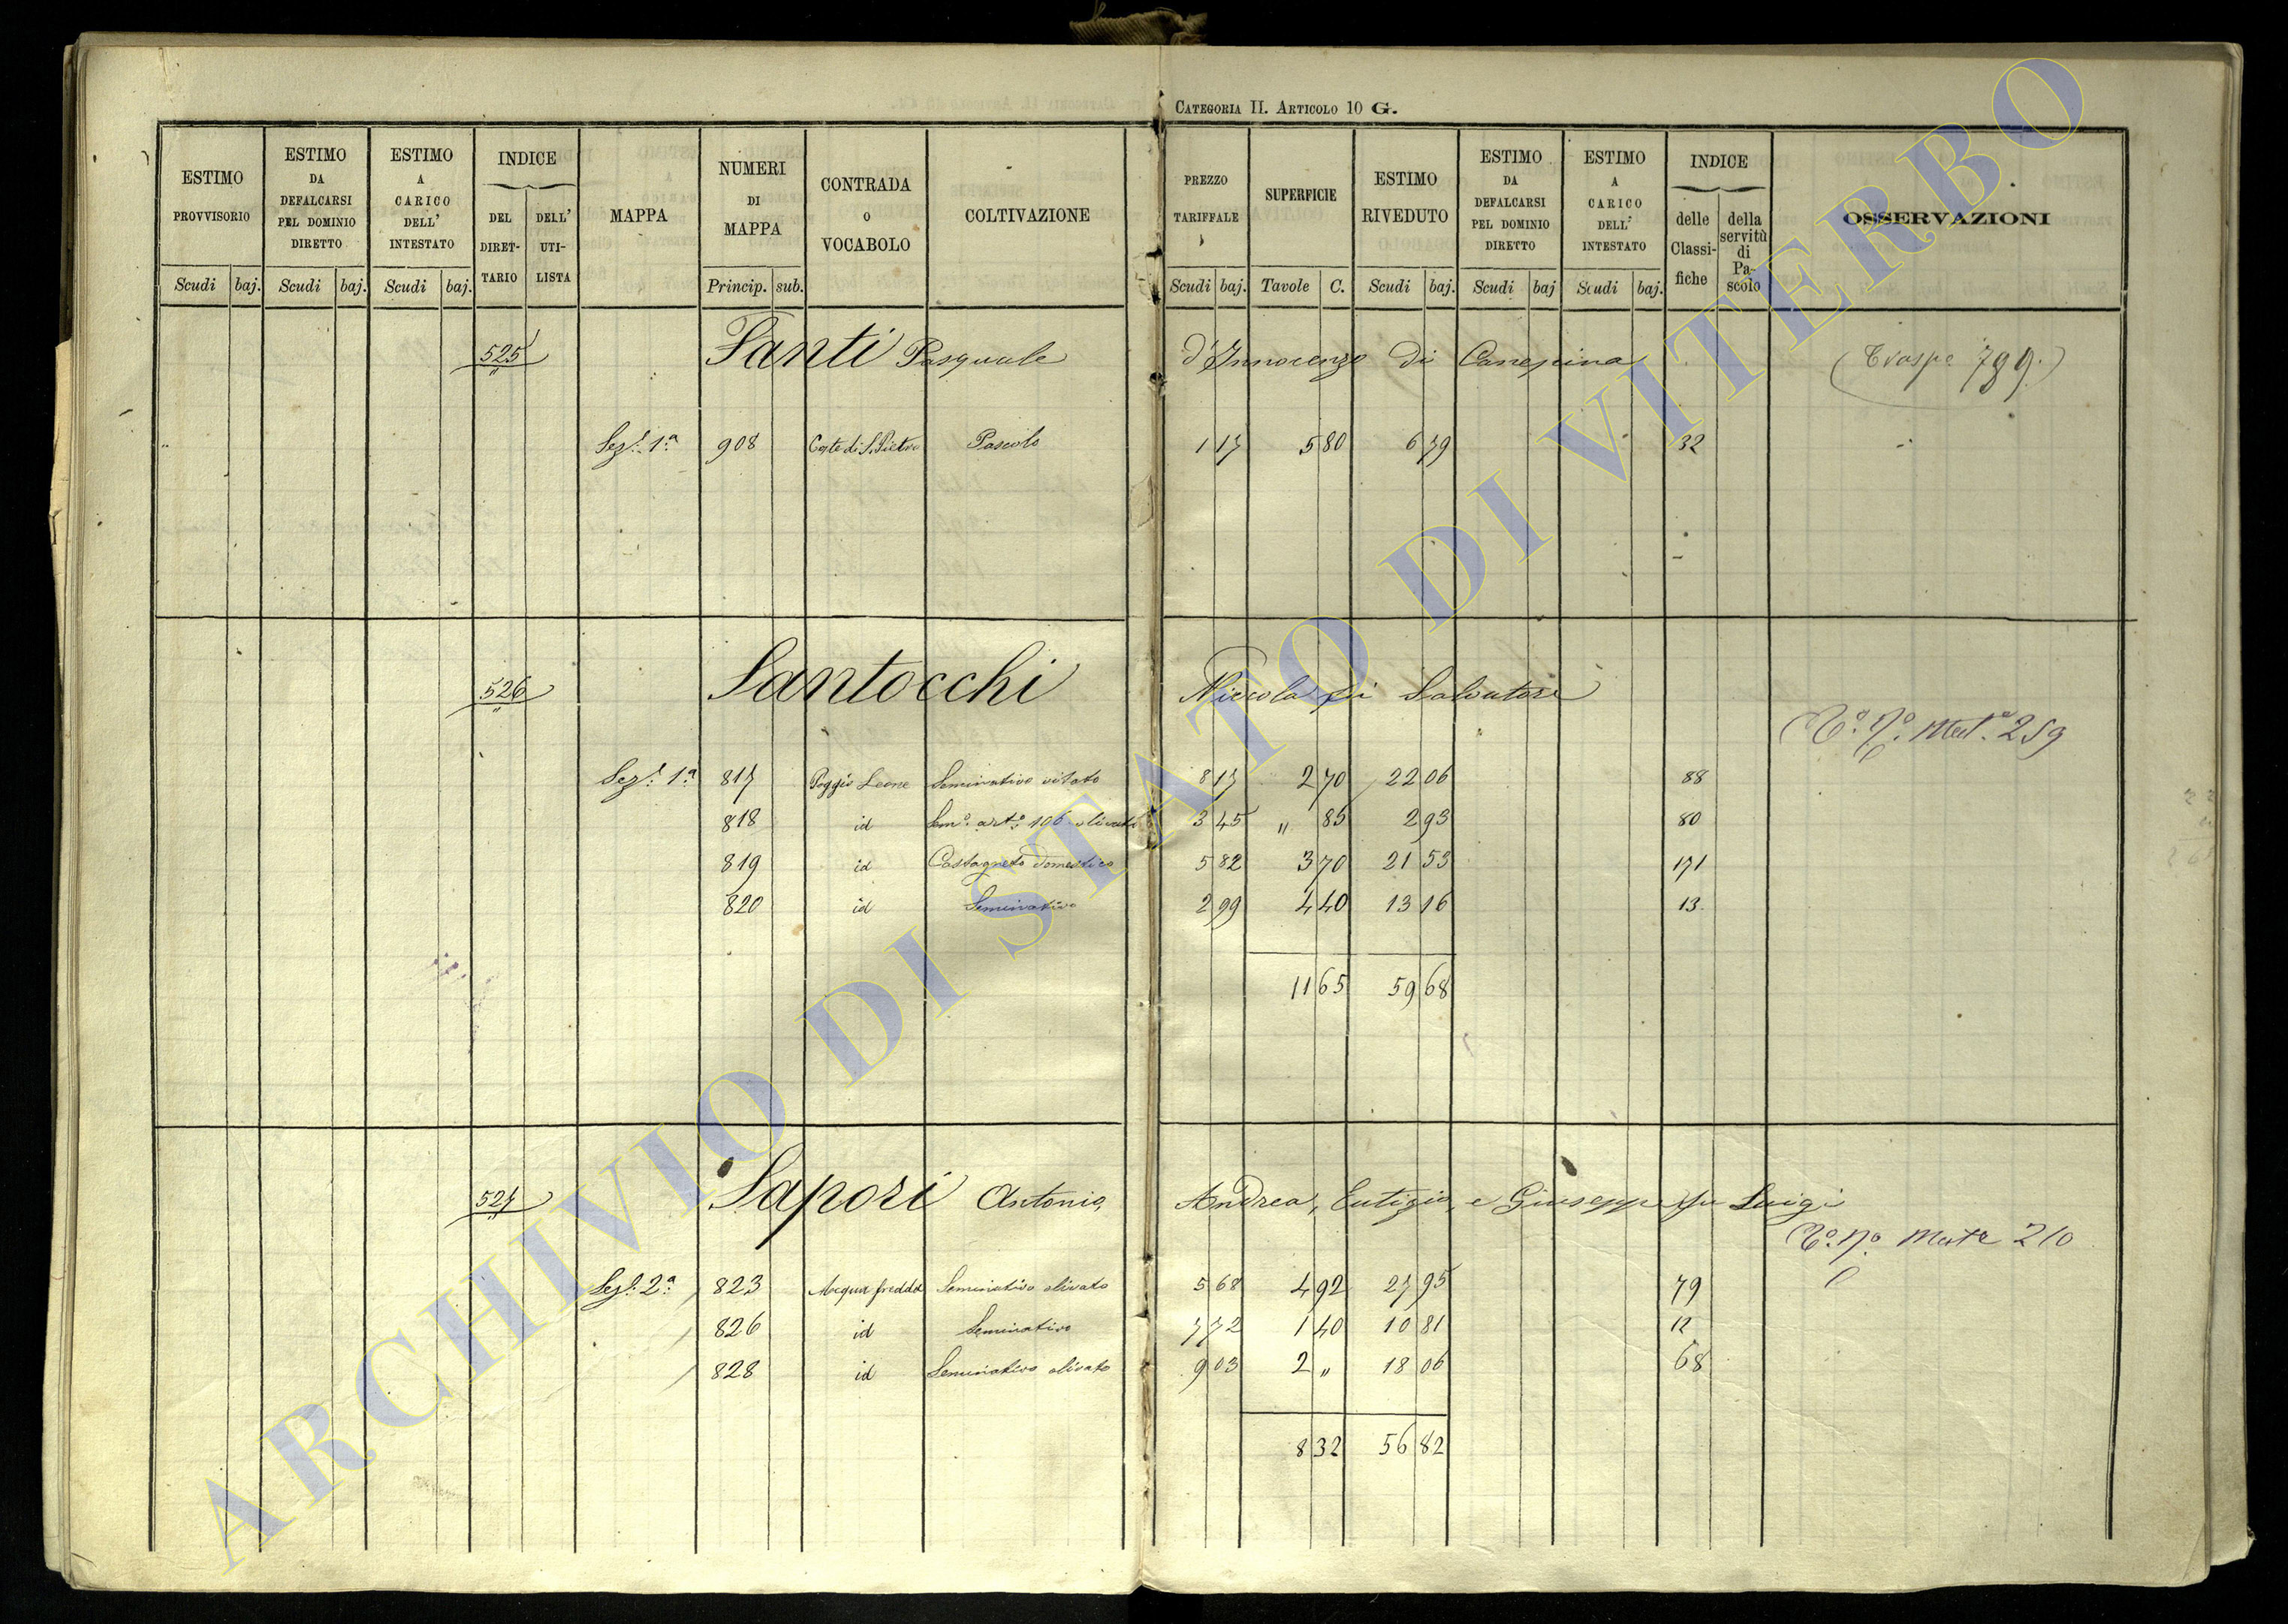 CATEGORIA II. ARTICOLO 10 G.
ESTIMO PROVVISORIO
ESTIMO DA DEFALCARSI PEL DOMINIO DIRETTO
ESTIMO A CARICO DELL' INTESTATO
INDICE
DEL DIRET-TARIO
DELL' UTI-LISTA
MAPPA
NUMERI DI MAPPA
CONTRADA O VOCABOLO
COLTIVAZIONE
PREZZO TARIFFALE
SUPERFICIE
ESTIMO RIVEDUTO
ESTIMO DA DEFALCARSI PEL DOMINIO DIRETTO
ESTIMO A CARICO DELL' INTESTATO
INDICE
delle Classi-fiche
della servitù di Pa-scolo
OSSERVAZIONI
Scudi baj. Scudi baj. Scudi baj. Princip. sub. Scudi baj. Tavole C. Scudi baj. Scudi baj Scudi baj.
525 Santi Pasquale d'Innocenzo di Canepina (Traspe 789.)
Sez.e 1.a 908 Coste di S. Pietro Pascolo 1 17 5 80 6 79 32
526 Santocchi Niccola di Salvatore
Mat.e 259
Sez.e 1.a 817 Poggio Leone Seminativo vitato 8 17 2 70 22 06 88
818 id Sem.o art.o 106 olivato 3 45 " 85 2 93 80
819 id Castagneto Domestico 5 82 3 70 21 53 171
820 id Seminativo 2 99 4 40 13 16 13
11 65 59 68
527 Sapori Antonio, Andrea, Eutizio, e Giuseppe fu Luigi
Mat.e 210
Sez.e 2.a 823 Acqua fredda Seminativo olivato 5 68 4 92 27 95 79
826 id Seminativo 7 72 1 40 10 81 12
828 id Seminativo olivato 9 03 2 " 18 06 68
8 32 56 82
ARCHIVIO DI STATO DI VITERBO